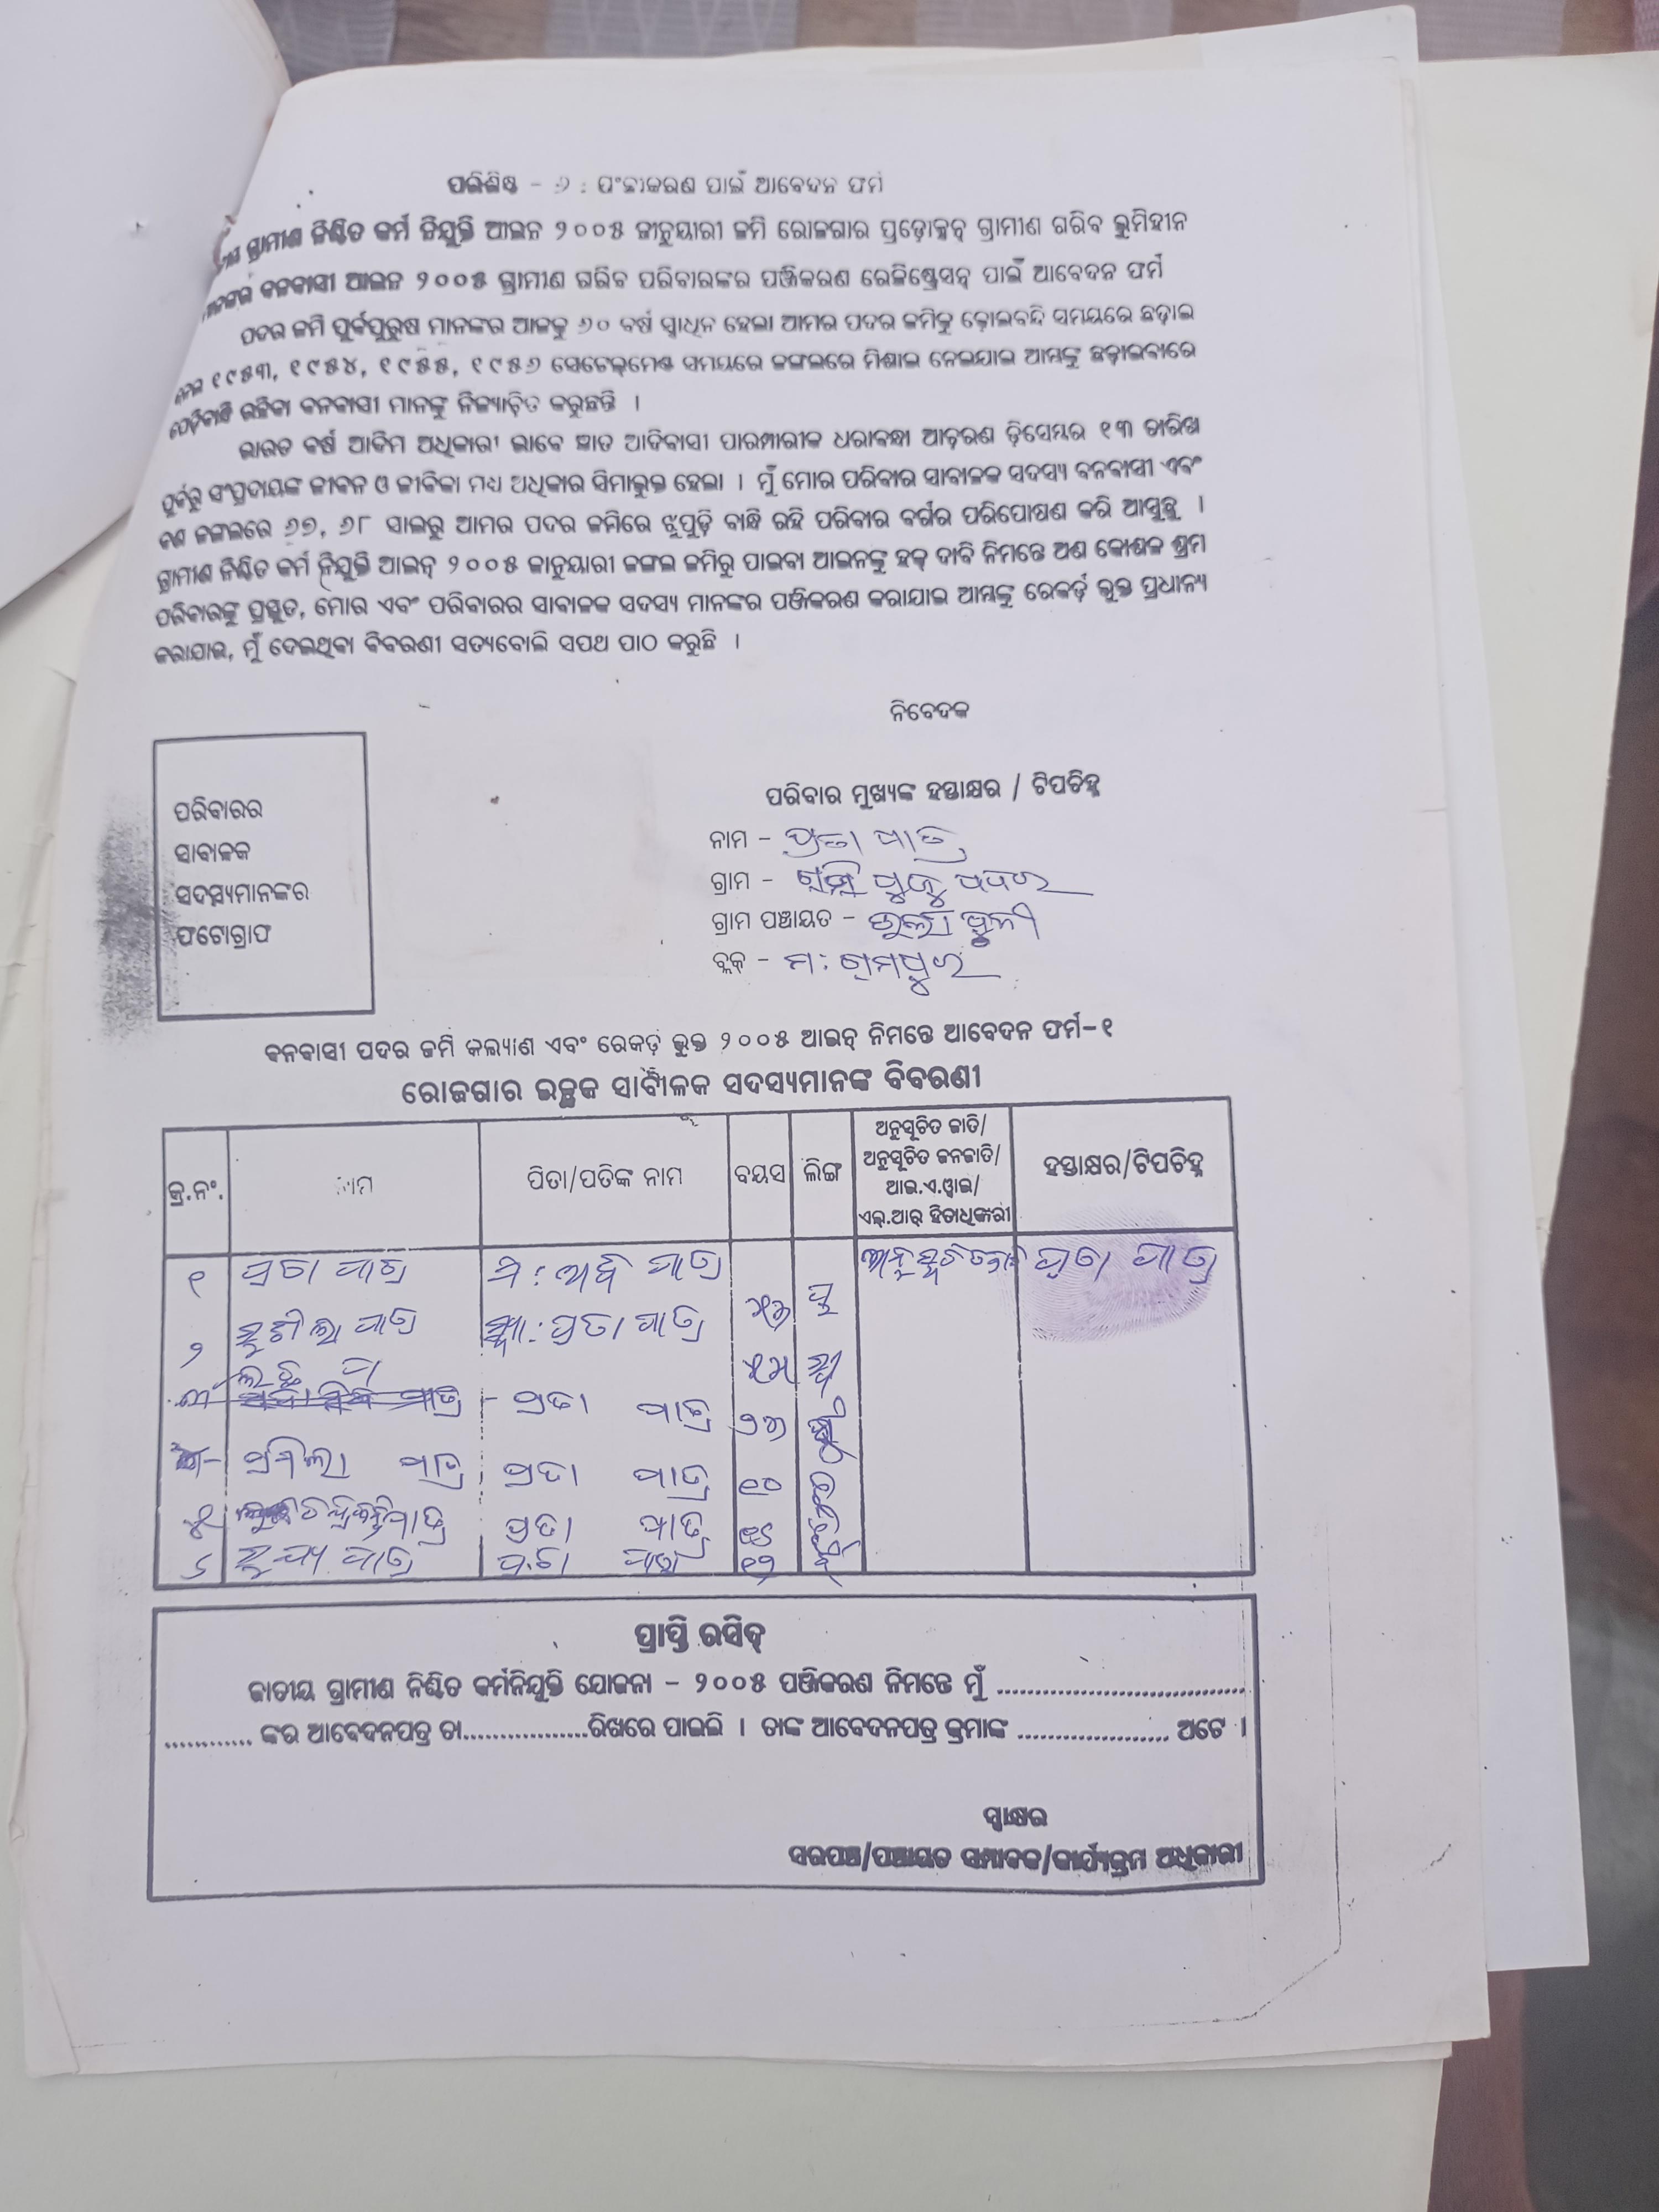 ପରିଶିଷ୍ଟ - ୬ : ପଂଜୀକରଣ ପାଇଁ ଆବେଦନ ଫର୍ମ
ଗ୍ରାମୀଣ ନିଶ୍ଚିତ କର୍ମ ନିଯୁକ୍ତି ଆଇନ ୨୦୦୫ ଜାନୁୟାରୀ ଜମି ରୋଜଗାର ପ୍ରଡ଼ୋକ୍ସନ୍ ଗ୍ରାମୀଣ ଗରିବ ଭୁମିହୀନ
ବନବାସୀ ଆଇନ ୨୦୦୫ ଗ୍ରାମୀଣ ଗରିବ ପରିବାରଙ୍କର ପଞ୍ଜିକରଣ ରେଜିଷ୍ଟ୍ରେସନ୍ ପାଇଁ ଆବେଦନ ଫର୍ମ
ପଦର ଜମି ପୂର୍ବପୁରୁଷ ମାନଙ୍କର ଆଜକୁ ୬୦ ବର୍ଷ ସ୍ୱାଧିନ ହେଲା ଆମର ପଦର ଜମିକୁ ଢ଼ୋଲବନ୍ଦି ସମୟରେ ଛଡ଼ାଇ
ନେଇ ୧୯୫୩, ୧୯୫୪, ୧୯୫୫, ୧୯୫୬ ସେଟେଲ୍‌ମେଣ୍ଟ ସମୟରେ ଜଙ୍ଗଲରେ ମିଶାଇ ନେଇଯାଇ ଆମ୍ଭଙ୍କୁ ଛଡ଼ାଇବାରେ
ରହିକା ବନବାସୀ ମାନଙ୍କୁ ନିଜ୍ୟାଡ଼ିତ କରୁଛନ୍ତି ।
ଭାରତ ବର୍ଷ ଆଦିମ ଅଧିକାରୀ ଭାବେ ଜ୍ଞାତ ଆଦିବାସୀ ପାରମ୍ପାରୀକ ଧରାବନ୍ଧା ଆଚ଼ରଣ ଡ଼ିସେମ୍ବର ୧୩ ତାରିଖ
ପୂର୍ବରୁ ସଂପ୍ରଦାୟଙ୍କ ଜୀବନ ଓ ଜୀବିକା ମଧ୍ୟ ଅଧିକାର ସିମାଭୁକ୍ତ ହେଲା । ମୁଁ ମୋର ପରିବାର ସାବାଳକ ସଦସ୍ୟ ବନବାସୀ ଏବଂ
ବଣ ଜଙ୍ଗଲରେ ୬୭, ୬୮ ସାଲରୁ ଆମର ପଦର ଜମିରେ ଝୁପୁଡ଼ି ବାନ୍ଧି ରହି ପରିବାର ବର୍ଗର ପରିପୋଷଣ କରି ଆସୁଛୁ ।
ଗ୍ରାମୀଣ ନିଶ୍ଚିତ କର୍ମ ନିଯୁକ୍ତି ଆଇନ୍ ୨୦୦୫ ଜାନୁୟାରୀ ଜଙ୍ଗଲ ଜମିରୁ ପାଇବା ଆଇନଙ୍କୁ ହକ୍ ଦାବି ନିମନ୍ତେ ଅଣ କୋଶଳ ଶ୍ରମ
ପରିବାରଙ୍କୁ ପ୍ରସ୍ତୁତ, ମୋର ଏବଂ ପରିବାରର ସାବାଳକ ସଦସ୍ୟ ମାନଙ୍କର ପଞ୍ଜିକରଣ କରାଯାଇ ଆମ୍ଭଙ୍କୁ ରେକର୍ଡ଼ ଭୁକ୍ତ ପ୍ରଧାନ୍ୟ
କରାଯାଇ, ମୁଁ ଦେଇଥିବା ବିବରଣୀ ସତ୍ୟବୋଲି ସପଥ ପାଠ କରୁଛି ।
ନିବେଦକ
ପରିବାରର
ସାବାଳକ
ସଦସ୍ୟମାନଙ୍କର
ଫଟୋଗ୍ରାଫ
ପରିବାର ମୁଖ୍ୟଙ୍କ ହସ୍ତାକ୍ଷର / ଟିପଚିହ୍ନ
ନାମ - ପ୍ରତା ପାତ୍ର
ଗ୍ରାମ -
ଗ୍ରାମ ପଞ୍ଚାୟତ -
ବ୍ଲକ୍ - ମ: ରାମପୁର
ବନବାସୀ ପଦର ଜମି କଲ୍ୟାଣ ଏବଂ ରେକର୍ଡ଼ ଭୁକ୍ତ ୨୦୦୫ ଆଇନ୍ ନିମନ୍ତେ ଆବେଦନ ଫର୍ମ-୧
ରୋଜଗାର ଇଚ୍ଛୁକ ସାବାଳକ ସଦସ୍ୟମାନଙ୍କ ବିବରଣୀ
କ୍ର.ନଂ. ନାମ ପିତା/ପତିଙ୍କ ନାମ ବୟସ ଲିଙ୍ଗ ଅନୁସୂଚିତ ଜାତି/ ହସ୍ତାକ୍ଷର/ଟିପଚିହ୍ନ
ଅନୁସୂଚିତ ଜନଜାତି/
ଆଇ.ଏ.ୱାଇ/
ଏଲ୍.ଆର୍ ହିତାଧିକାରୀ
୧ ପ୍ରତା ପାତ୍ର ପାତ୍ର ପୁ ପ୍ରତା ପାତ୍ର
୨ ପାତ୍ର ସ୍ୱା: ପ୍ରତା ପାତ୍ର ସ୍ତ୍ରୀ
୩ ପ୍ରତା ପାତ୍ର ୨୬
ପ୍ରମିଲା ପାତ୍ର ପ୍ରତା ପାତ୍ର
ପାତ୍ର ପ୍ରତା ପାତ୍ର
ପାତ୍ର
ପ୍ରାପ୍ତି ରସିଦ୍
ଜାତୀୟ ଗ୍ରାମୀଣ ନିଶ୍ଚିତ କର୍ମନିଯୁକ୍ତି ଯୋଜନା - ୨୦୦୫ ପଞ୍ଜିକରଣ ନିମନ୍ତେ ମୁଁ ................................
............ ଙ୍କର ଆବେଦନପତ୍ର ତା.................ରିଖରେ ପାଇଲି । ତାଙ୍କ ଆବେଦନପତ୍ର କ୍ରମାଙ୍କ .................... ଅଟେ ।
ସ୍ୱାକ୍ଷର
ସରପଞ୍ଚ/ପଞ୍ଚାୟତ ସମ୍ପାଦକ/କାର୍ଯ୍ୟକ୍ରମ ଅଧିକାରୀ